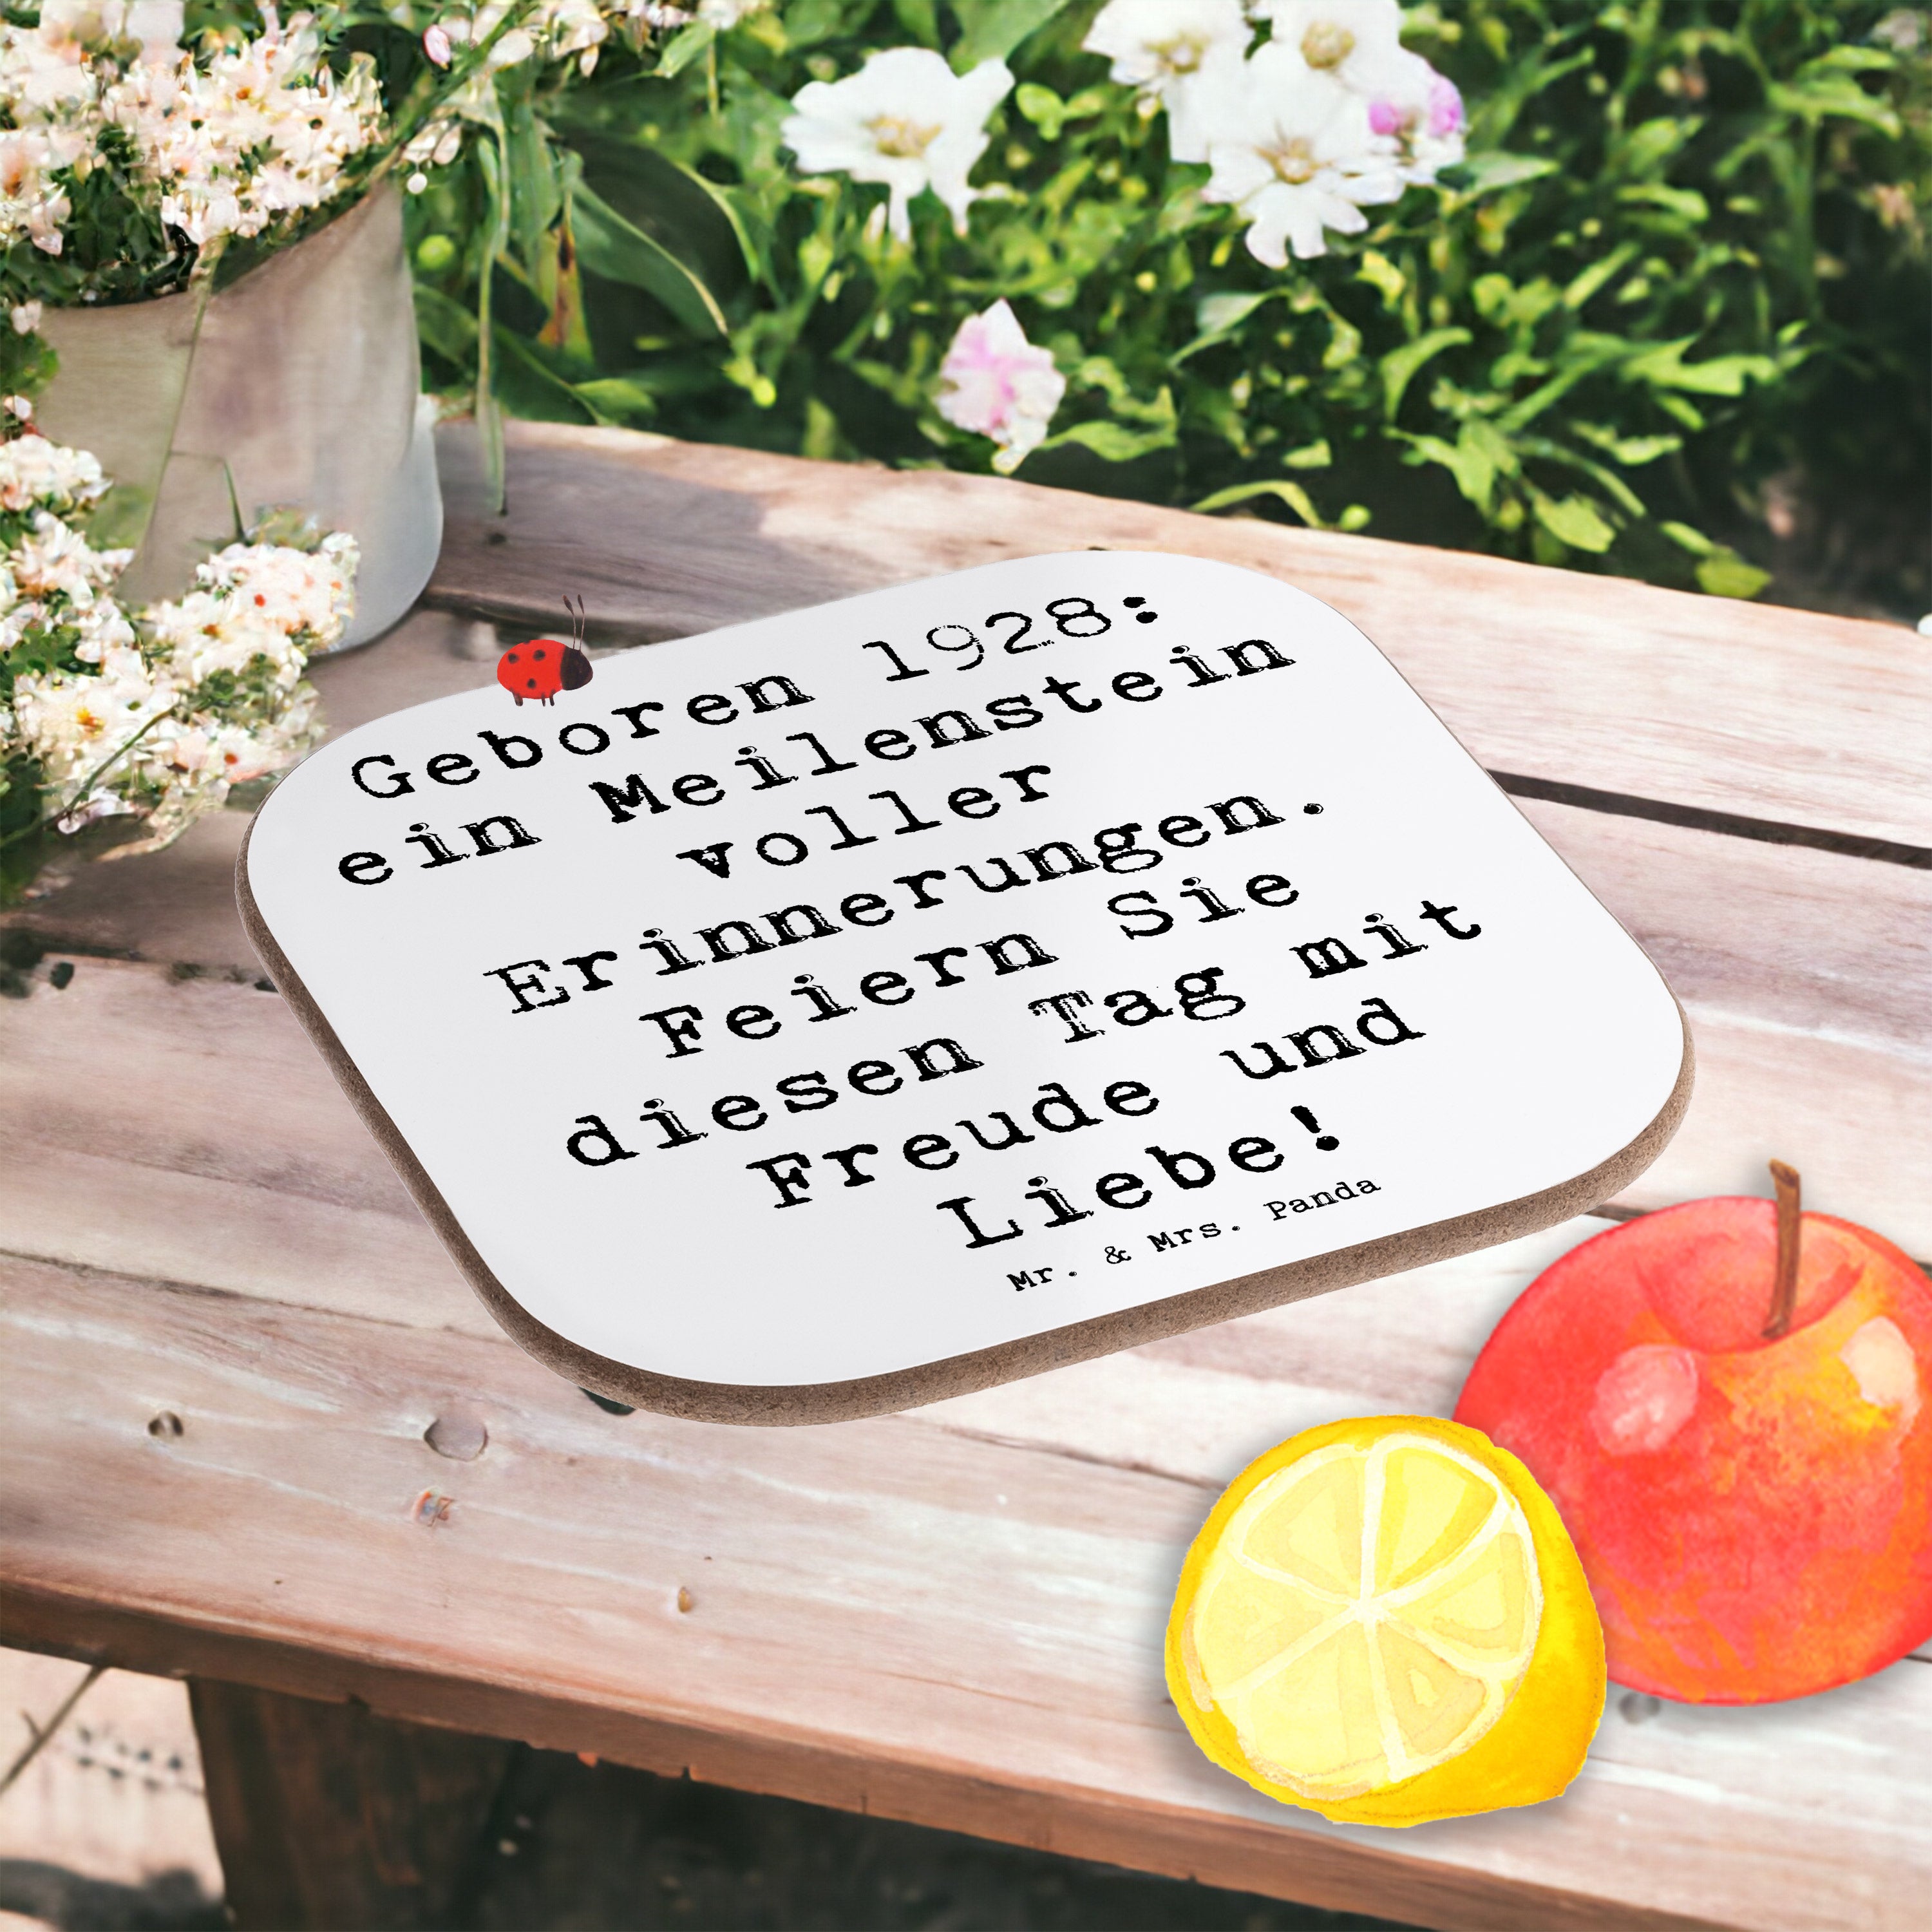 Geboren 1928:
ein Meilenstein
voller
Erinnerungen.
Feiern Sie
diesen Tag mit
Freude und
Liebe!
Mr. & Mrs. Panda